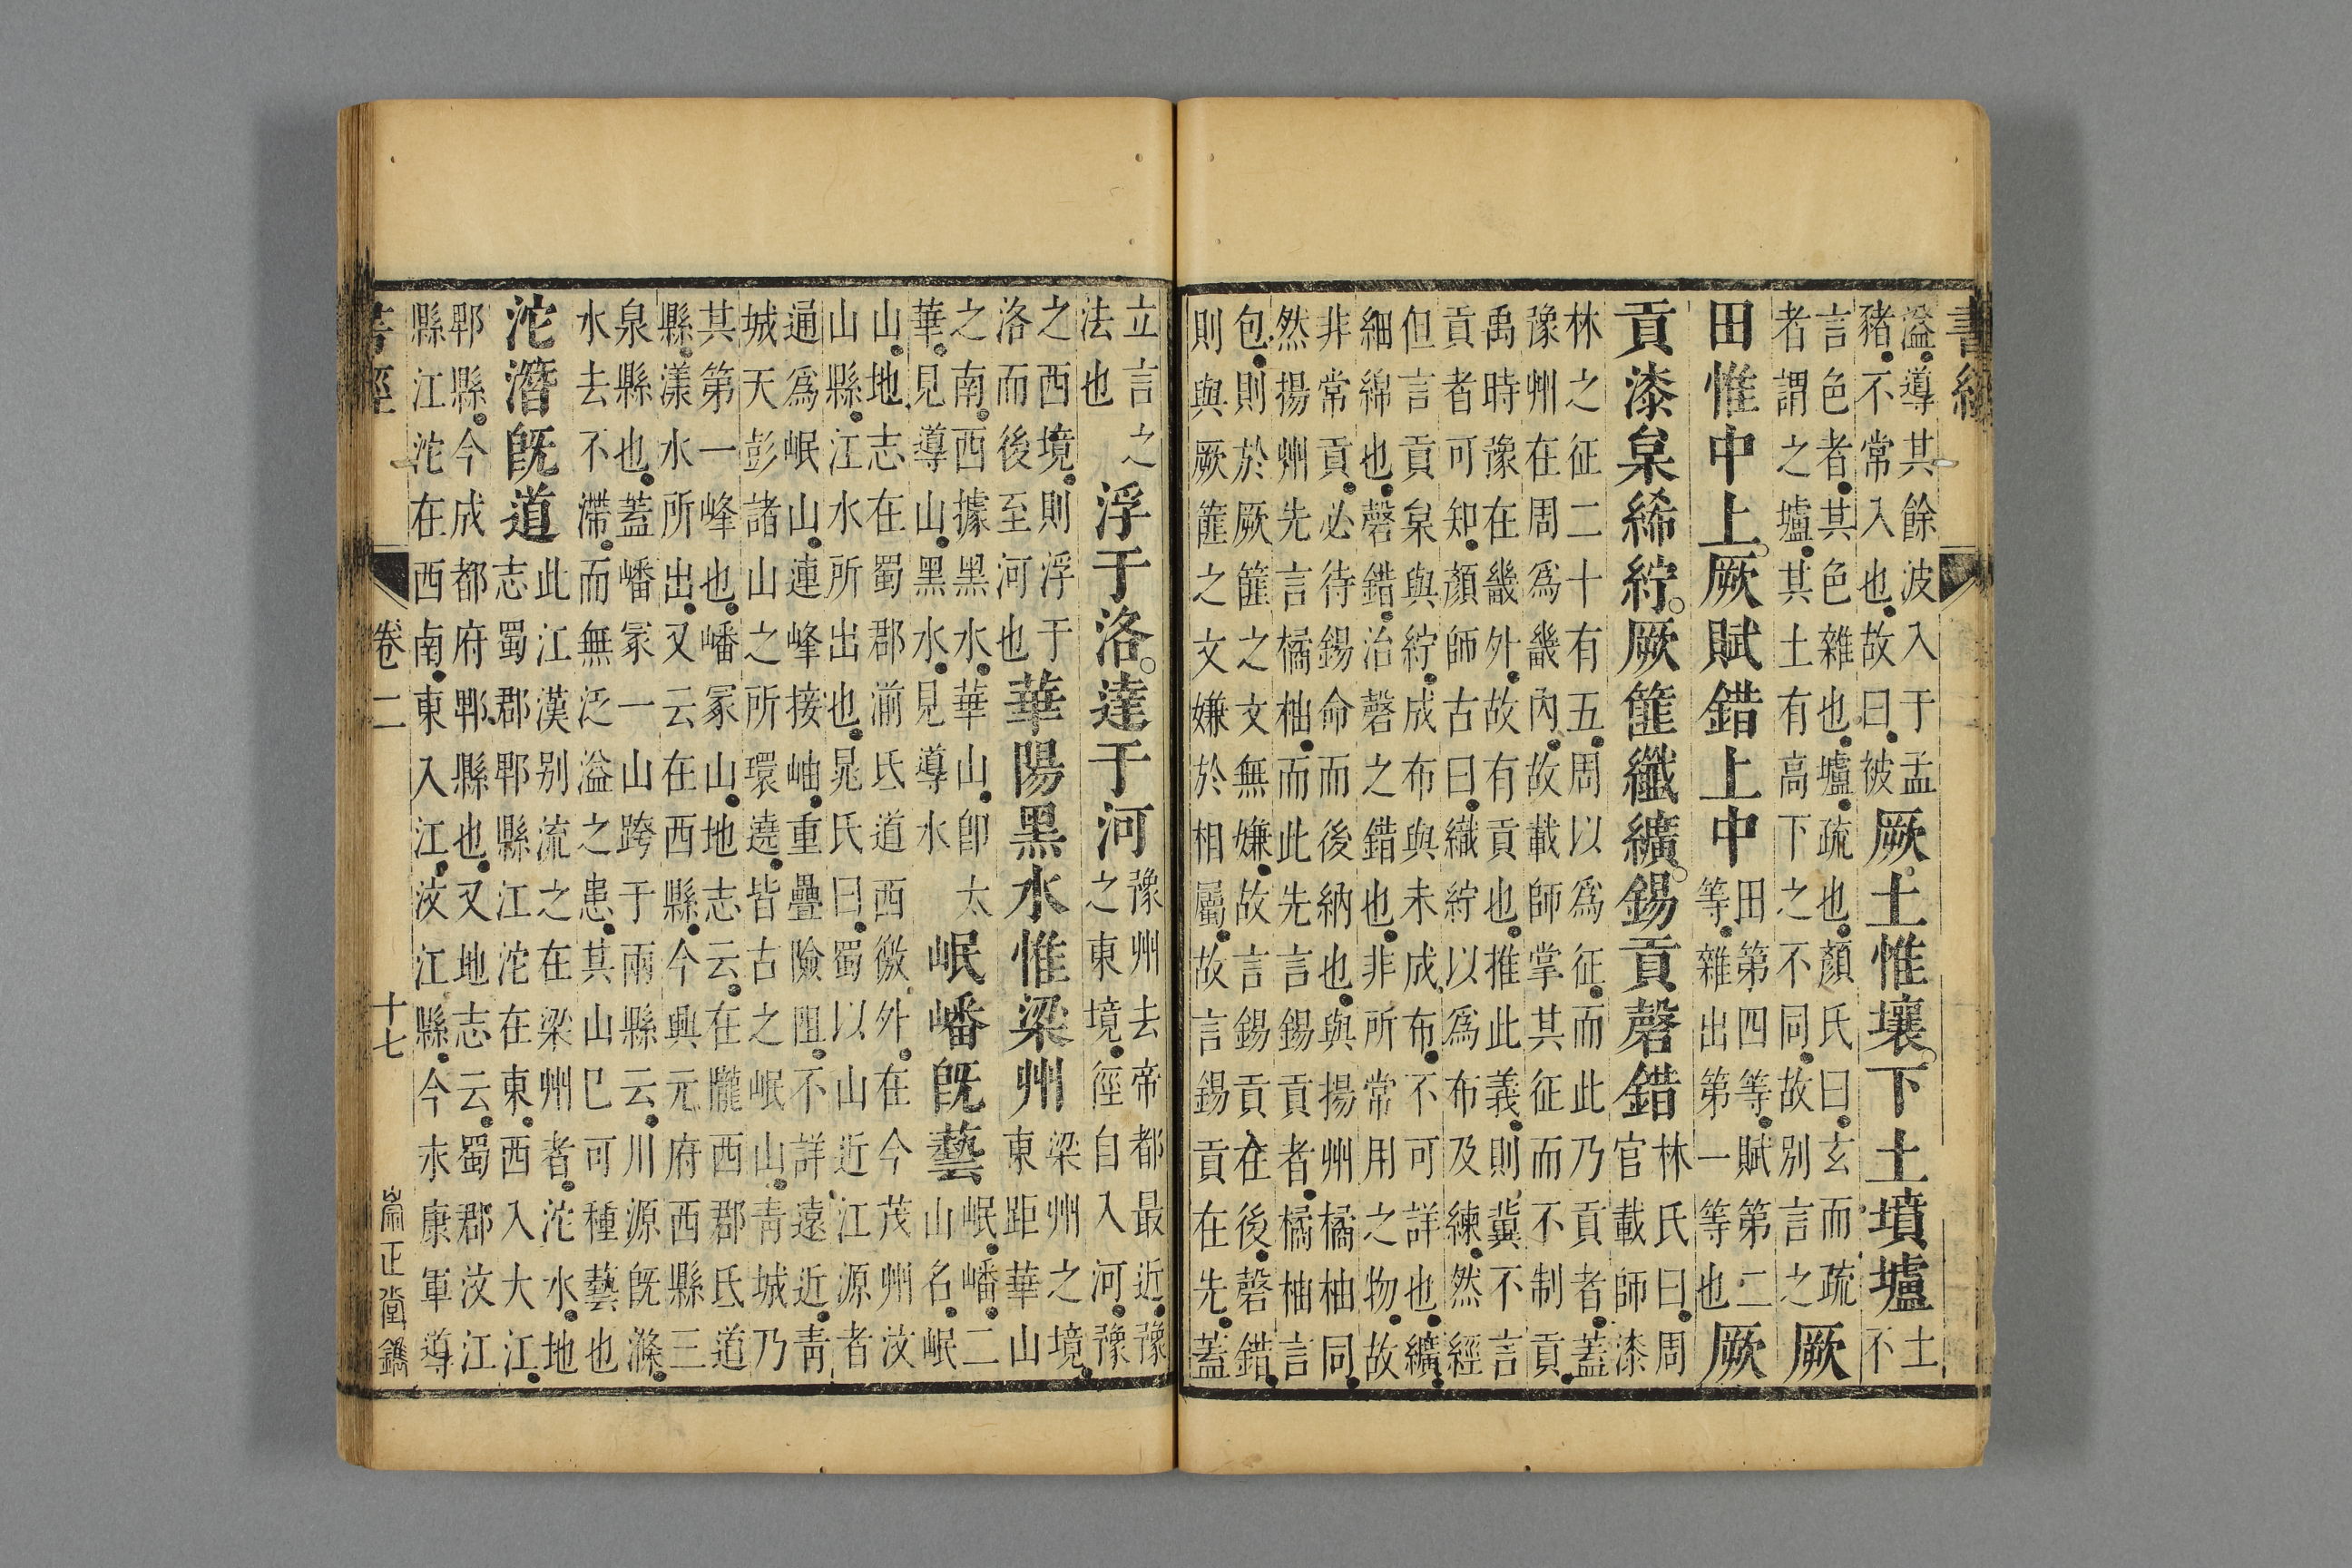 書經
溢導其餘波入于孟
豬不常入也故曰被
厥土惟壤下土墳壚
土
不
言色者其色雜也壚疏也顏氏曰玄而疏
者謂之壚其土有高下之不同故別言之
厥
田惟中上厥賦錯上中
田第四等賦第二
等雜出第一等也
厥
貢漆枲絺紵厥篚纖纊錫貢磬錯
林氏曰周
官載師漆
林之征二十有五周以爲征而此乃貢者蓋
豫州在周爲畿內故載師掌其征而不制貢
禹時豫在畿外故有貢也推此義則冀不言
貢者可知顏師古曰織紵以爲布及練然經
但言貢枲與紵成布與未成布不可詳也纊
細綿也磬錯治磬之錯也非所常用之物故
非常貢必待錫命而後納也與揚州橘柚同
然揚州先言橘柚而此先言錫貢者橘柚言
包則於厥篚之文無嫌故言錫貢在後磬錯
則與厥篚之文嫌於相屬故言錫貢在先蓋
立言之
法也
浮于洛達于河
豫州去帝都最近豫
之東境徑自入河豫
之西境則浮于
洛而後至河也
華陽黑水惟梁州
梁州之境
東距華山
之南西據黑水華山卽太
華見導山黑水見導水
岷嶓旣藝
岷嶓二
山名岷
山地志在蜀郡湔氐道西徼外在今茂州汶
山縣江水所出也晁氏曰蜀以山近江源者
通爲岷山連峰接岫重疊險阻不詳遠近青
城天彭諸山之所環遶皆古之岷山青城乃
其第一峰也嶓冢山地志云在隴西郡氐道
縣漾水所出又云在西縣今興元府西縣三
泉縣也蓋嶓冢一山跨于兩縣云川源旣滌
水去不滯而無泛溢之患其山巳可種藝也
沱潛旣道
此江漢別流之在梁州者沱水地
志蜀郡郫縣江沱在東西入大江
郫縣今成都府郫縣也又地志云蜀郡汶江
縣江沱在西南東入江汶江縣今永康軍導
書經
卷二
十七
崇正堂鐫